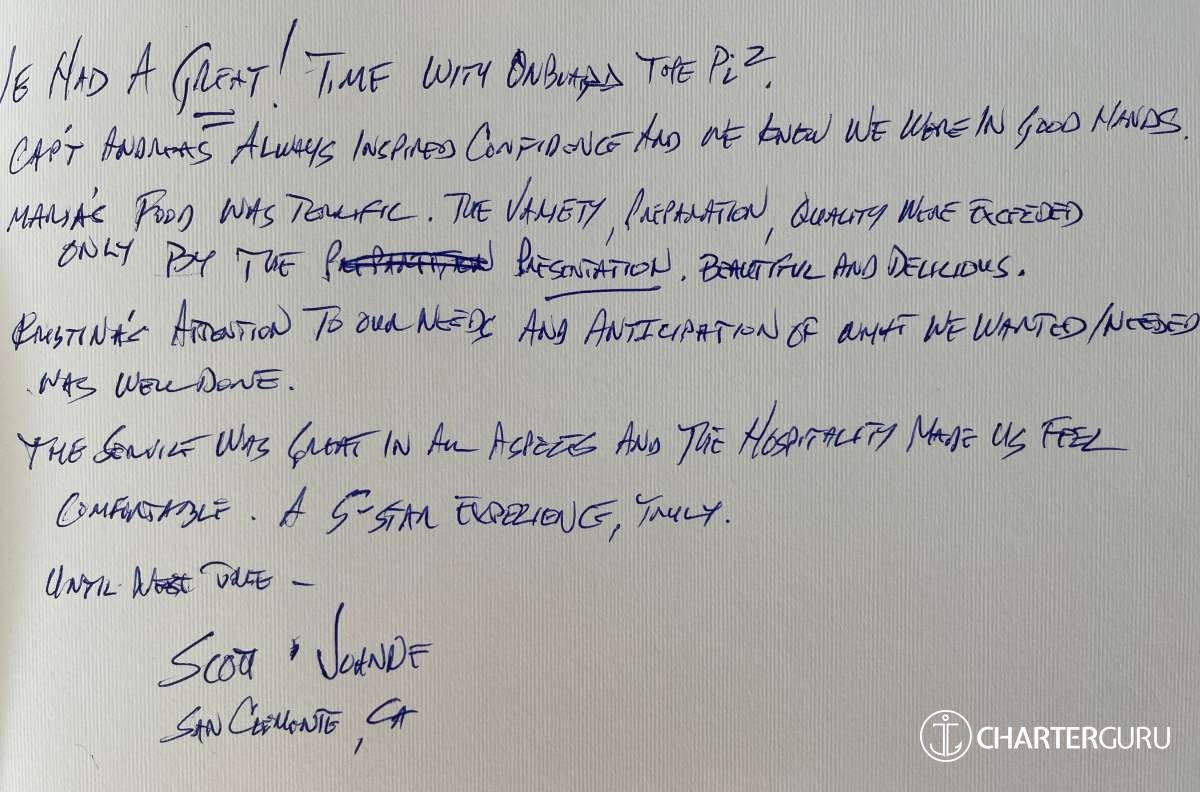 WE HAD A GREAT! TIME WITH ONBOARD THE Pi2.
CAP'T ANDREAS ALWAYS INSPIRED CONFIDENCE AND WE KNEW WE WERE IN GOOD HANDS.
MARIA'S FOOD WAS TERRIFIC. THE VARIETY, PREPARATION, QUALITY WERE EXCEEDED
ONLY BY THE PRESENTATION. BEAUTIFUL AND DELICIOUS.
ATTENTION TO OUR NEEDS AND ANTICIPATION OF WHAT WE WANTED/NEEDED
WAS WELL DONE.
THE SERVICE WAS GREAT IN ALL ASPECTS AND THE HOSPITALITY MADE US FEEL
COMFORTABLE. A 5-STAR EXPERIENCE, TRULY.
UNTIL NEXT TIME –
SCOTT
SAN CLEMENTE, CA
CHARTERGURU